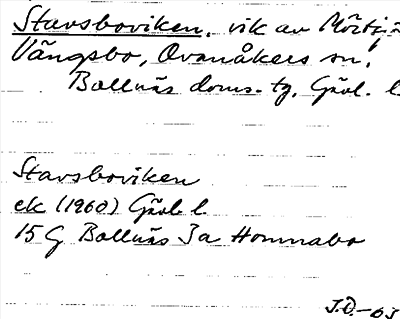 Stavsboviken, vik av
Vängsbo, Ovanåkers sn,
Bollnäs doms. tg, Gävl. l
Stavsboviken
ek (1960) Gävl l
15 G Bollnäs 3a Homnabo
J.Ö.-63